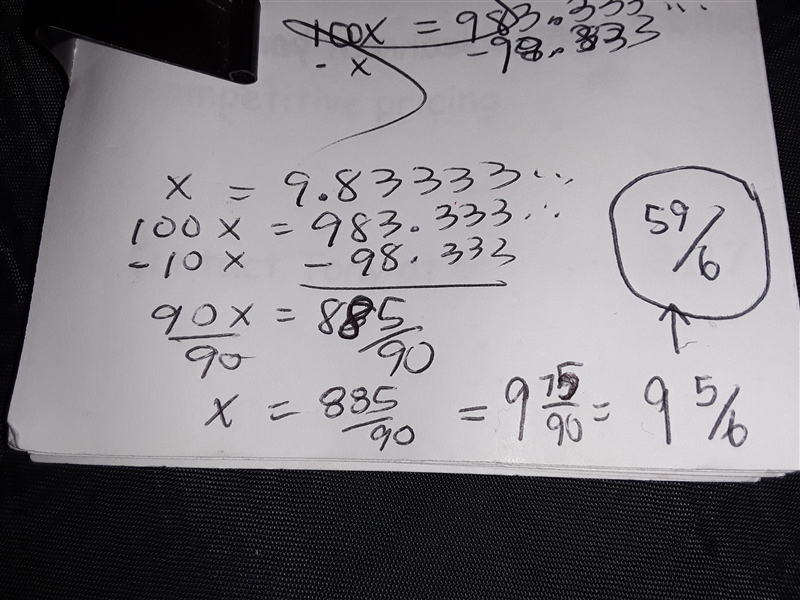 100x = 983.333...
- x -98.333
x = 9.83333...
100x = 983.333...
-10x -98.333
90x/90 = 885/90
x = 885/90 = 9 75/90 = 9 5/6
59/6